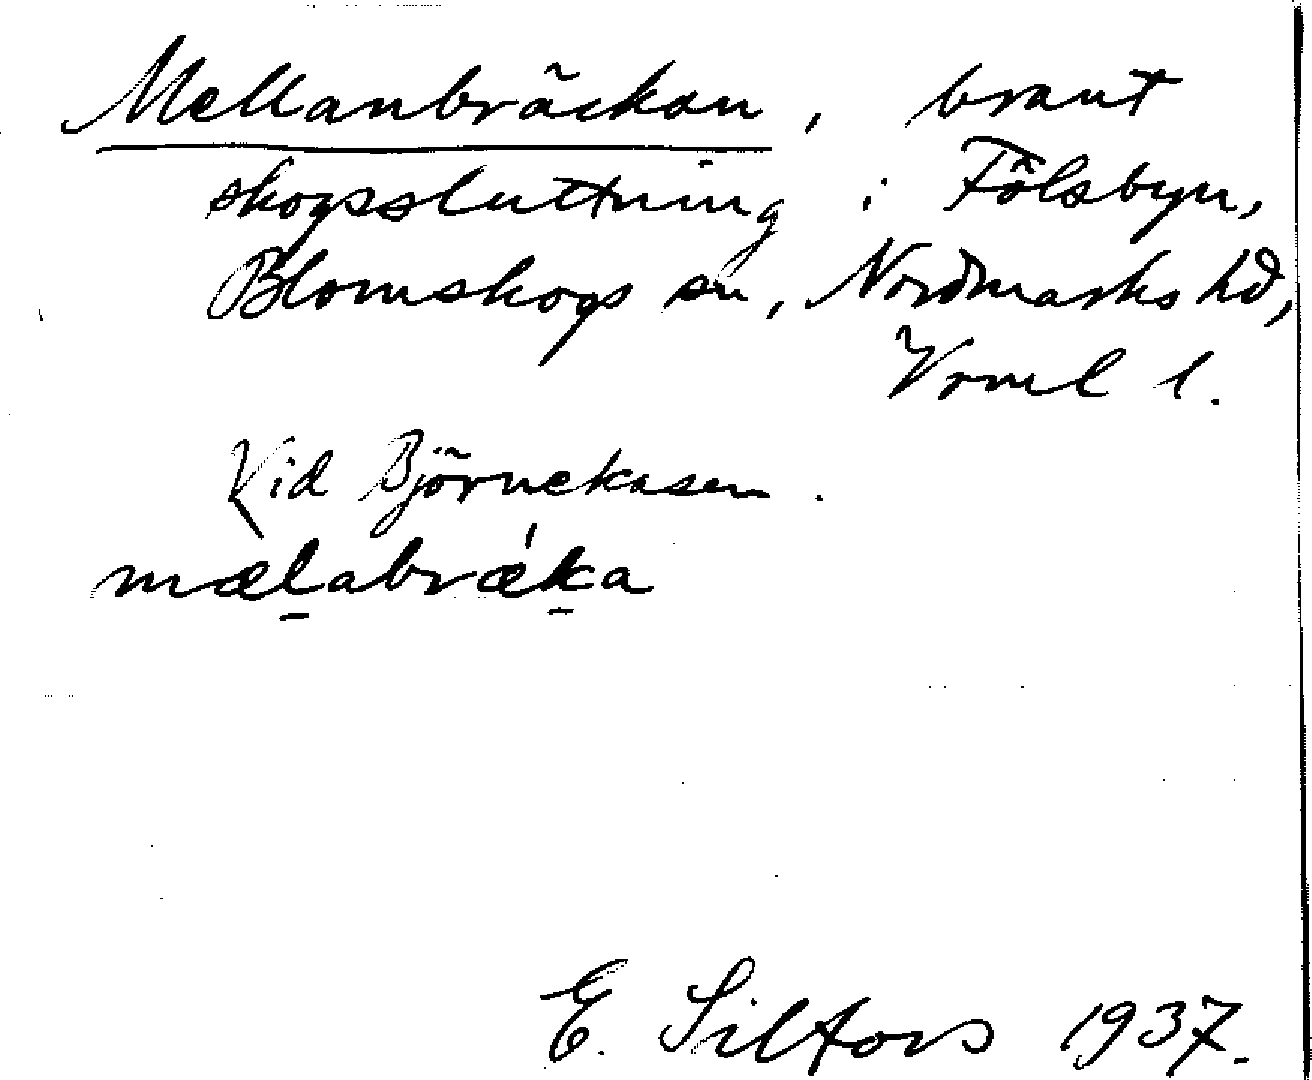 Mellanbräckan, brant
skogssluttning i Fölsbyn,
Blomskogs sn, Nordmarks hd,
Vrml l.
Vid Björnekasen.
mælabræ̀ka
E. Silfors 1937.